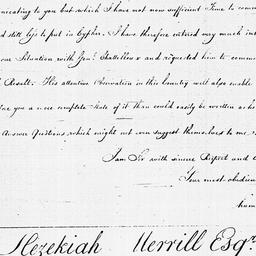 nicating to you but which I have not now sufficient Time to comm
and still less to put in Cypher. I have therefore entered very much into
our Situation with Genl. Chatellux & requested him to commu
Result. His attentive Observation in this Country will also enable
give you a more complete State of it than could easily be written as he
Answer Questions which might not even suggest themselves to me
I am Sir with sincere Respect and
Your most obedien
hum
Hezekiah Merrill Esqr.